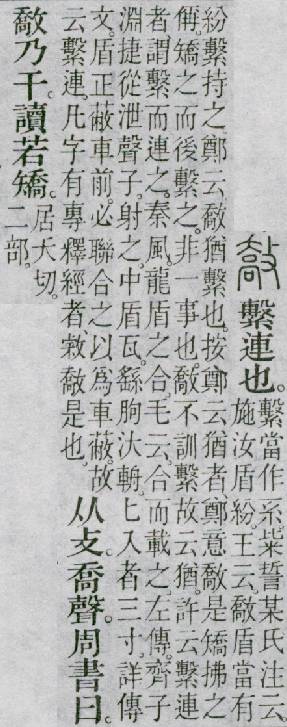 敿 繫連也。
繫當作系。柴誓某氏注云。
施汝盾紛。王云。敿盾當有
紛繫持之。鄭云。敿猶繫也。按鄭云猶者。鄭意敿是矯拂之
偁。矯之而後繫之。非一事也。敿不訓繫。故云猶。許云繫連
者。謂繫而連之。秦風。龍盾之合。毛云。合而載之。左傳。齊子
淵捷從泄聲子。射之。中盾瓦。繇朐汏輈。匕入者三寸。詳傳
文。盾正蔽車前。必聯合之以爲車蔽。故
云繫連。凡字有專釋經者。敹敿是也。
从攴。喬聲。周書曰。
敿乃干。讀若矯。
居夭切。
二部。